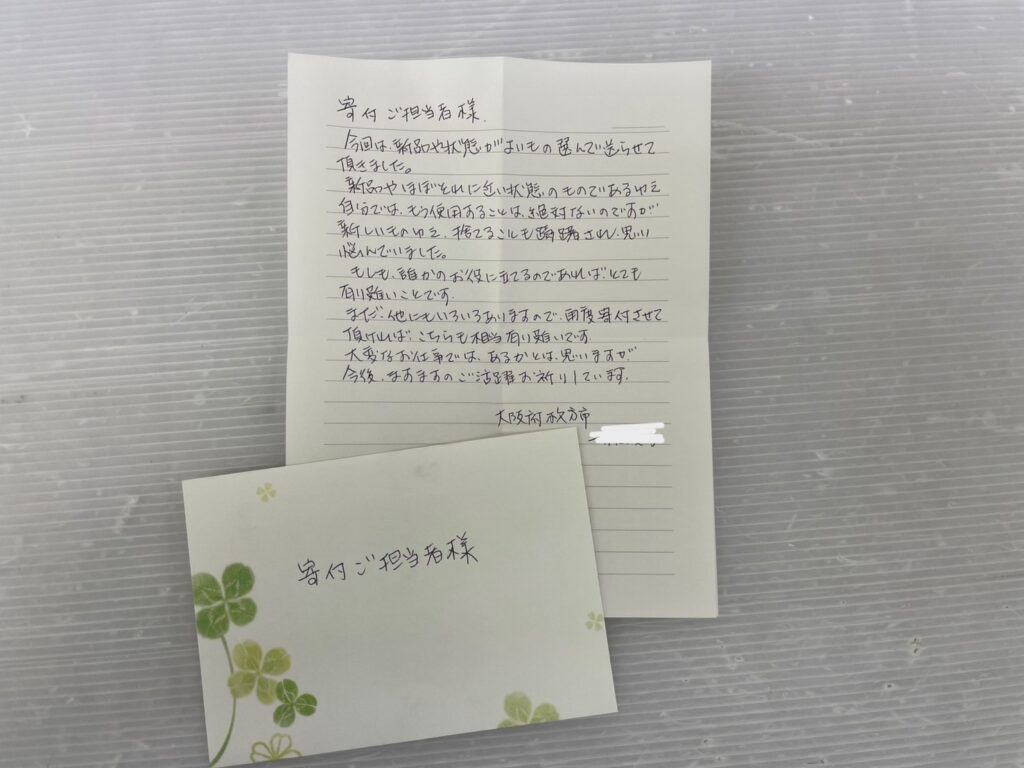 寄付ご担当者様
今回は、新品や状態がよいもの選んで送らせて
頂きました。
新品やほぼそれに近い状態のものであるゆえ
自分では、もう使用することは、絶対ないのですが
新しいものゆえ、捨てることも躊躇され、思い
悩んでいました。
もしも、誰かのお役に立てるのであればとても
有り難いことです。
まだ、他にもいろいろありますので、再度寄付させて
頂ければ、こちらも相当有り難いです。
大変なお仕事では、あるかとは、思いますが
今後、ますますのご活躍お祈りしています。
大阪府枚方市
寄付ご担当者様